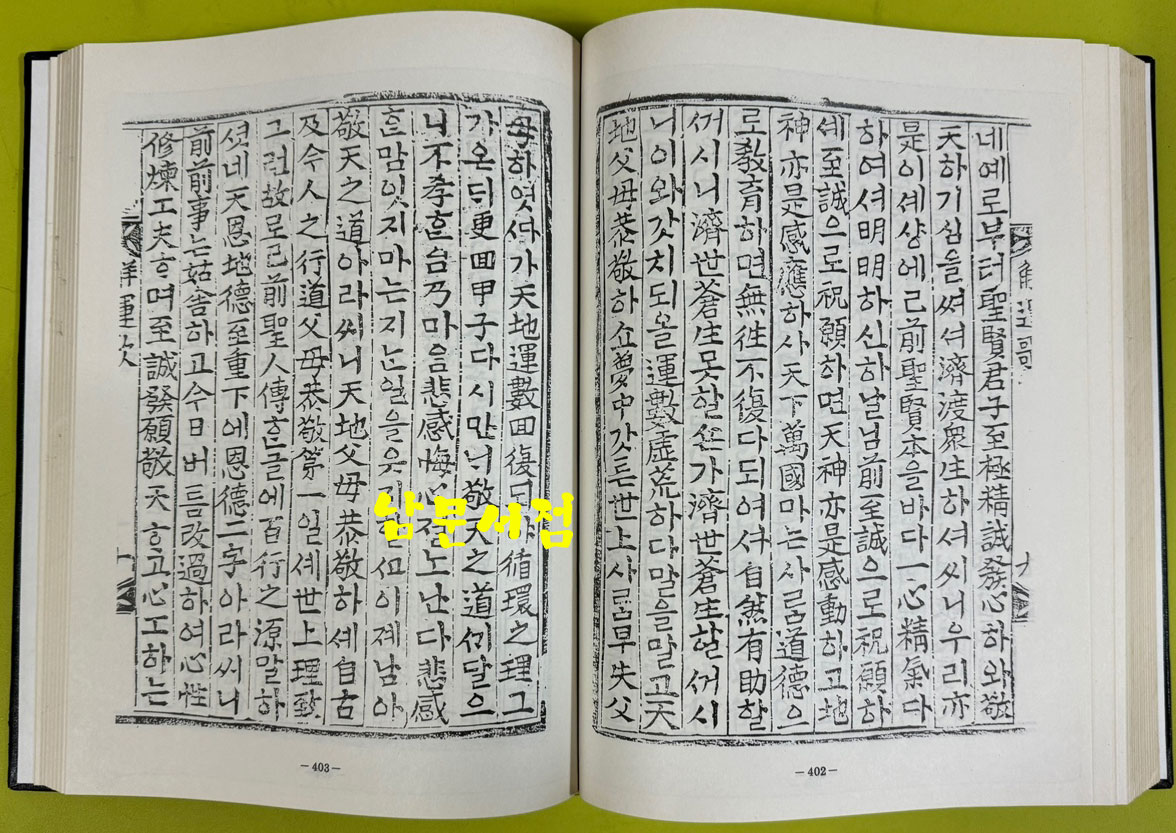 네예로부터聖賢君子至極精誠發心하와敬
天하기심을쎠셔濟渡衆生하셔씨니우리亦
是이셰샹에已前聖賢本을바다一心精氣다
하여셔明明하신하날님前至誠으로祝願하
셰至誠으로祝願하면天神亦是感動하고地
神亦是感應하사天下萬國마는사람道德으
로敎育하면無往不復다되여셔自然有助할
꺼시니濟世蒼生못할손가濟世蒼生할꺼시
니이와갓치되올運數虛荒하다말을말고天
地父母恭敬하쇼夢中갓든世上사람早失父
解運歌
九
-402-
母하엿다가天地運數回復循環之理그
가온듸更回甲子다시만너敬天之道꺠달으
니不孝흔맘마음悲感悔心졀노난다悲感
흔맘잇지마는지는일을이졔남아
敬天之道아라씨니天地父母恭敬하셰自古
及今人之行道父母恭敬第一일셰世上理致
그런故로已前聖人傳흔글에百行之源말하
셧네天恩地德至重下에恩德二字아라씨니
前前事는姑舍하고今日버틈改過하여心性
修煉工夫하며至誠發願敬天하고心工하는
解運歌
十
-403-
남문서점